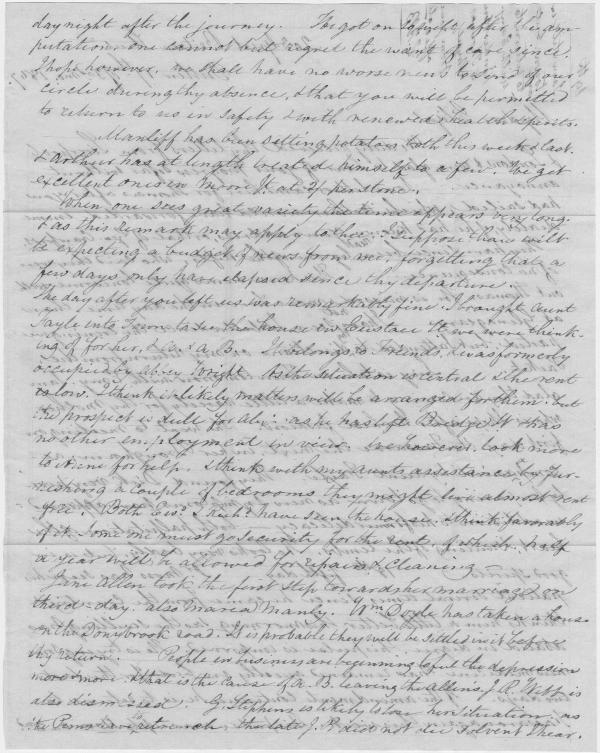 day night after the journey. He got on so well after the am-
putation, one cannot but regret the want of care since.
I hope however, we shall have no worse news to send of our
circle during thy absence, & that you will be permitted
to return to us in safety & with renewed health & spirits.
Manliff has been setting potatoes both this week & last.
& Arthur has at length treated himself to a few. We get
excellent ones in Moore St at per stone.
When one sees great variety the time appears very long.
& as this remark may apply to thee. I suppose thou wilt
be expecting a budget of news from me, forgetting that a
few days only have elapsed since thy departure.
The day after you left us was remarkably fine. I brought aunt
Tayle into Town to see the house in Eustace St we were think-
ing of for her, & A. B. It belongs to Friends, & was formerly
occupied by Wright. As the situation is central & the rent
is low. I think it likely matters will be arranged for them. but
the prospect is dull for as he has left Bridge St & has
no other employment in view. We however, look more
to for help. I think with my aunts assistance, by fur-
nishing a couple of bedrooms they might live almost rent
free. Both have seen the house & think favorably
of it. Some one must go security for the rent, of which half
a year will be allowed for repairs & Cleaning.
Jane Allen took the first step towards her marriage on
third-day. also Maria Manly. Wm Doyle has taken a house
on the Donybrook road. It is probable they will be settled in it before
thy return. People in business are beginning to feel the depression
more & more. & that is the cause of A. B. leaving the Allens, J. R. Webb is
also dismissed. G. Stephens is likely to lose his situation, as
the Penroses retrench. the late J. P. did not die Solvent I hear.